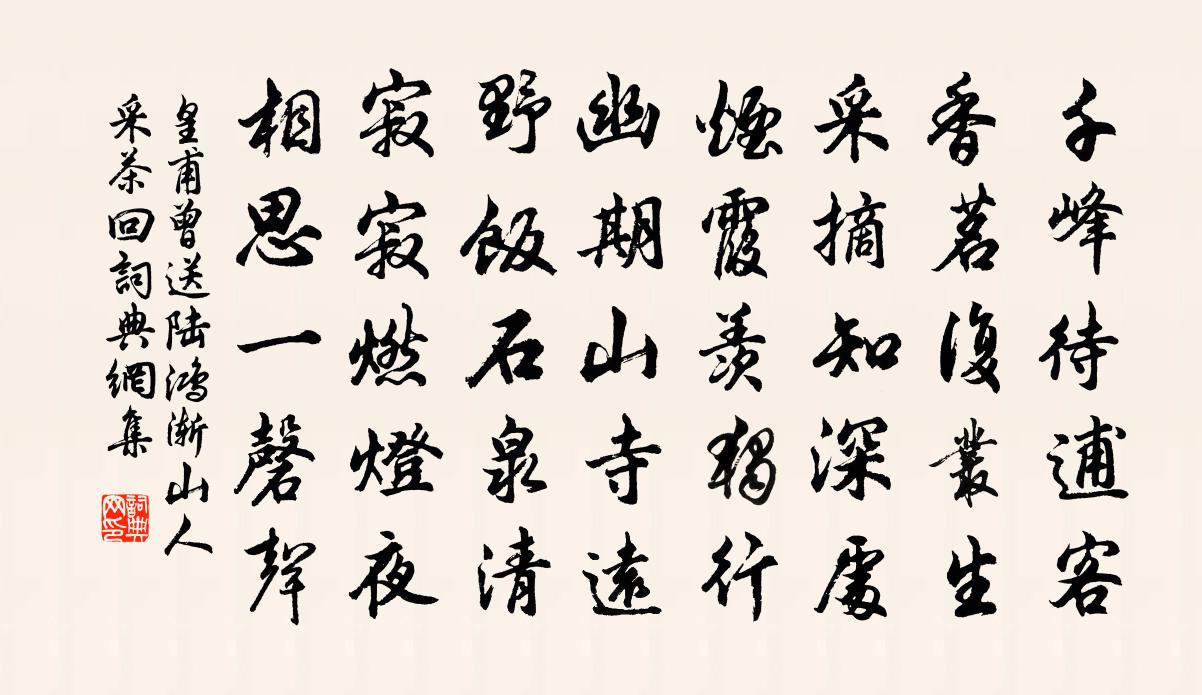 千峰待逋客
香茗復叢生
采摘知深處
煙霞羨獨行
幽期山寺遠
野飯石泉清
寂寂燃燈夜
相思一磬聲
皇甫曾送陸鴻漸山人
采茶回詞典網集
詞典网印